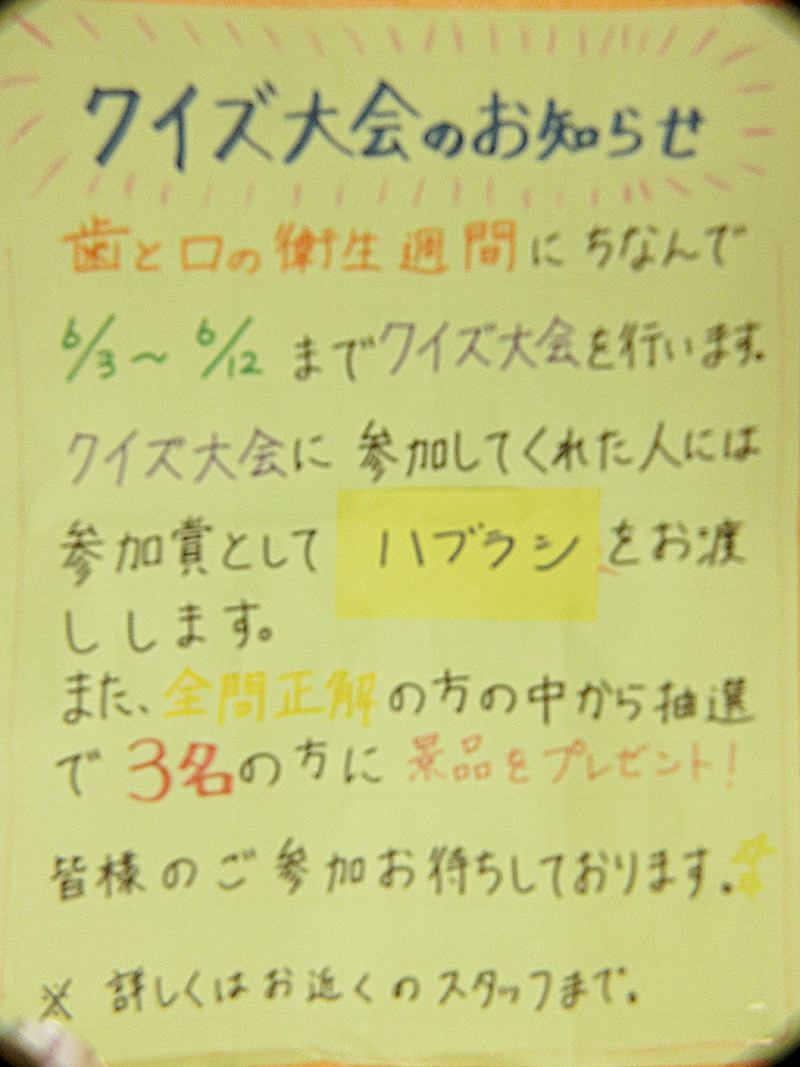 クイズ大会のお知らせ
歯と口の衛生週間にちなんで
6/3～6/12までクイズ大会を行います。
クイズ大会に参加してくれた人には
参加賞としてハブラシをお渡
しします。
また、全問正解の方の中から抽選
で3名の方に景品をプレゼント!
皆様のご参加お待ちしております。
※詳しくはお近くのスタッフまで。